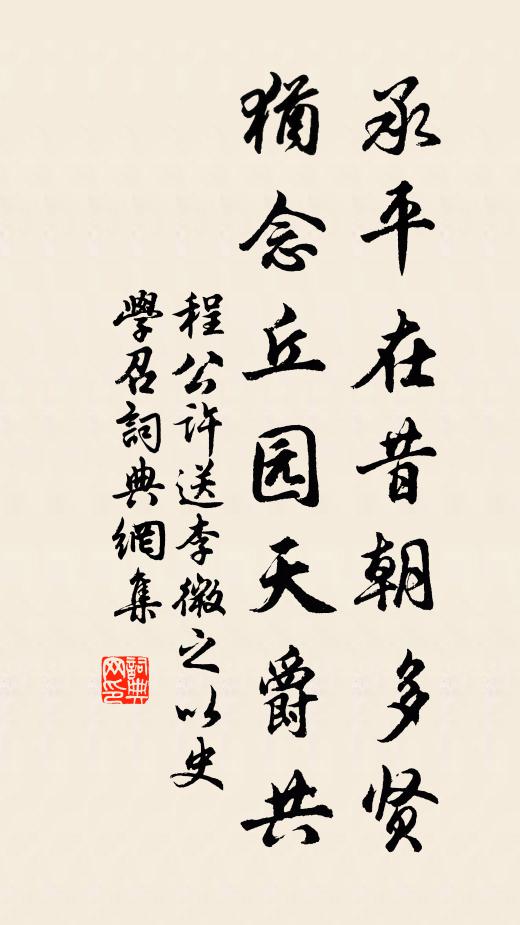 承平在昔朝多贤
犹念丘园天爵共
程公许送李微之以史
学召詞典網集
詞典网印